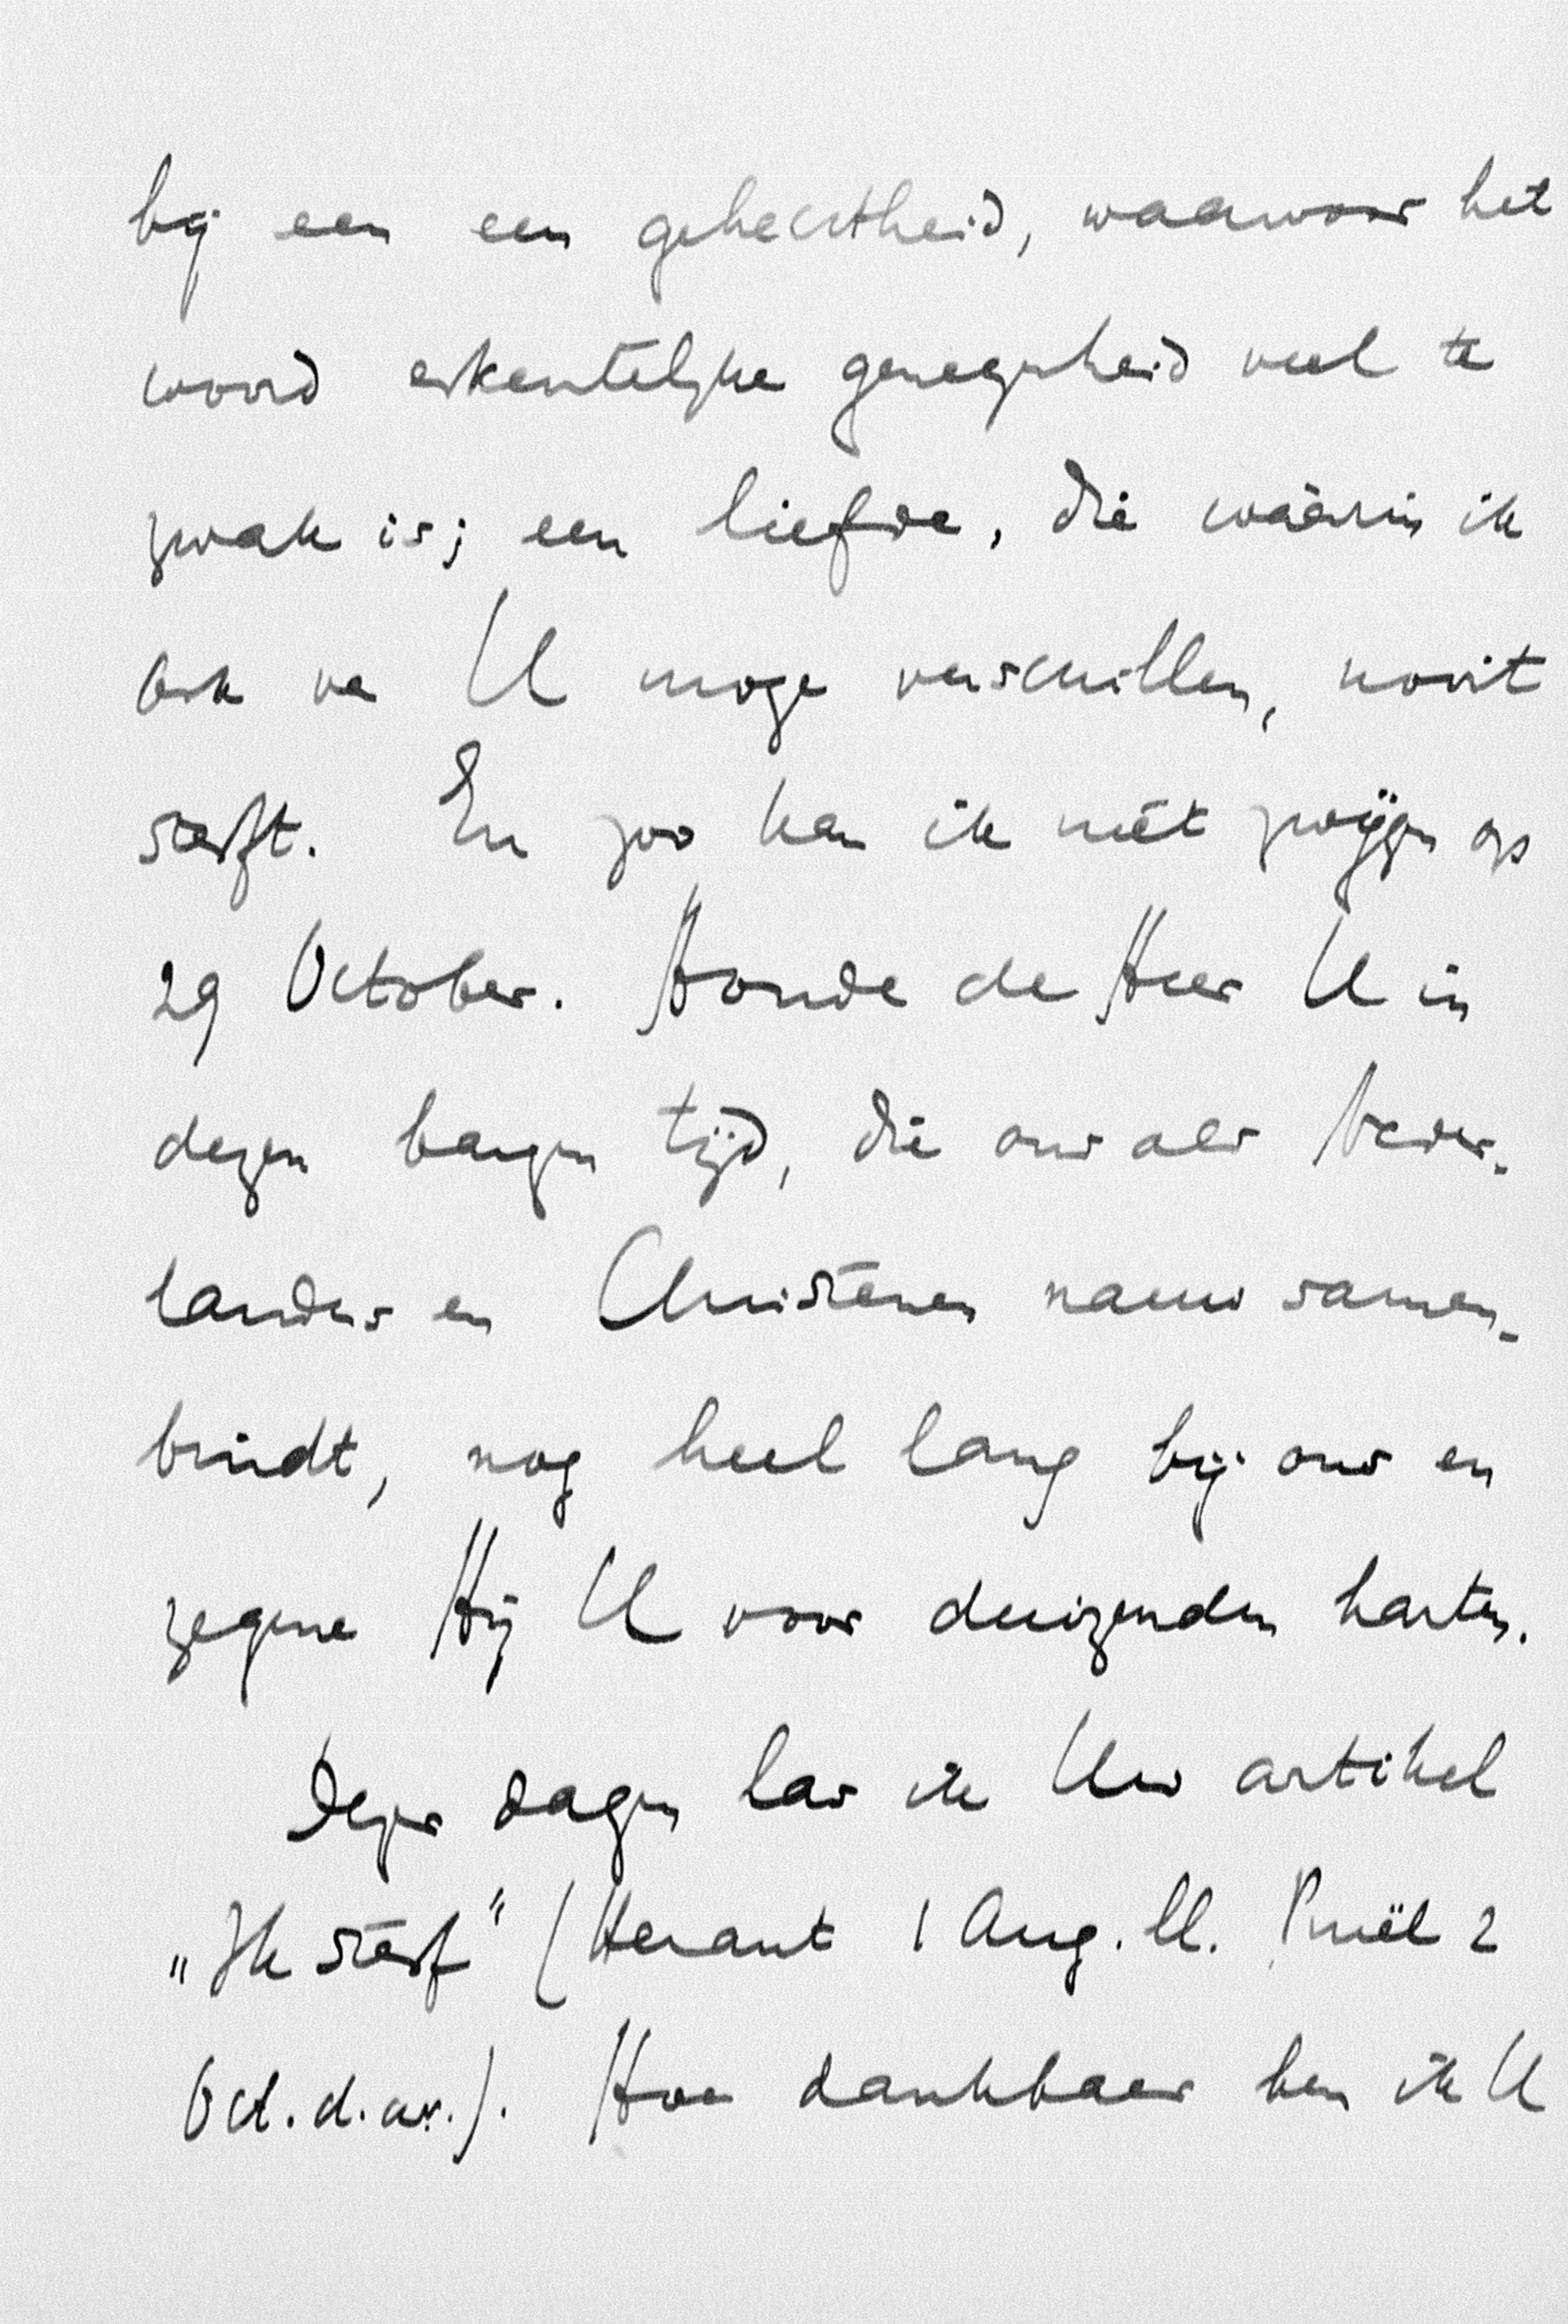 bij een een gehechtheid, waarvoor het
woord erkentelijke genegenheid veel te
zwak is; een liefde, die waarin ik
ook van U moge verschillen, nooit
sterft. En zoo kan ik niet zwijgen op
29 October. Houde de Heer U in
dezen bangen tijd, die ons als Neder-
landers en Christenen nauw samen-
bindt, nog heel lang bij ons en
zegene Hij U voor duizenden harten.
Dezer dagen las ik Uw artikel
„Ik sterf" (Heraut 1 Aug. ll. Pniël 2
Oct. d.a.v.). Hoe dankbaar ben ik U